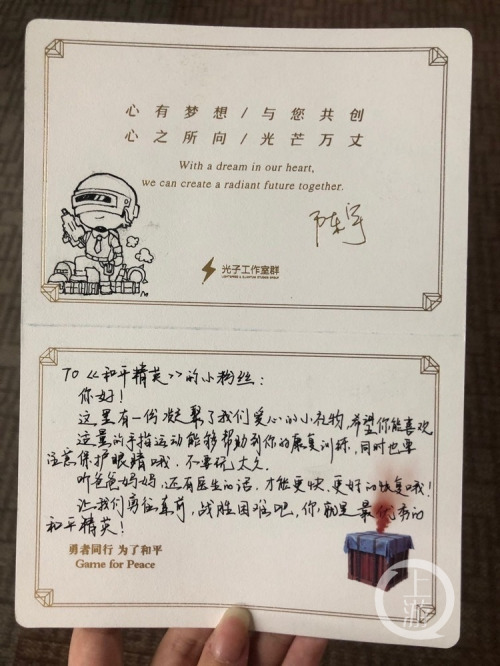 心有梦想/与您共创
心之所向/光芒万丈
With a dream in our heart,
we can create a radiant future together.
陈宇
光子工作室群
LIGHTSPEED & QUANTUM STUDIOS GROUP
TO《和平精英》的小粉丝:
你好!
这里有一份凝聚了我们爱心的小礼物,希望你能喜欢
适量的手指运动能够帮助到你的康复训练,同时也要
注意保护眼睛哦,不要玩太久。
听爸爸妈妈,还有医生的话,才能更快、更好的恢复哦!
让我们勇往直前,战胜困难吧,你就是最优秀的
和平精英!
勇者同行 为了和平
Game for Peace
上游